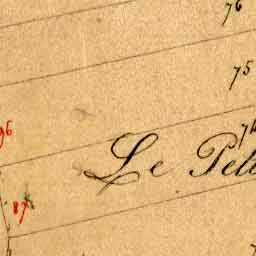 76
75
96
74
Le Pet
87